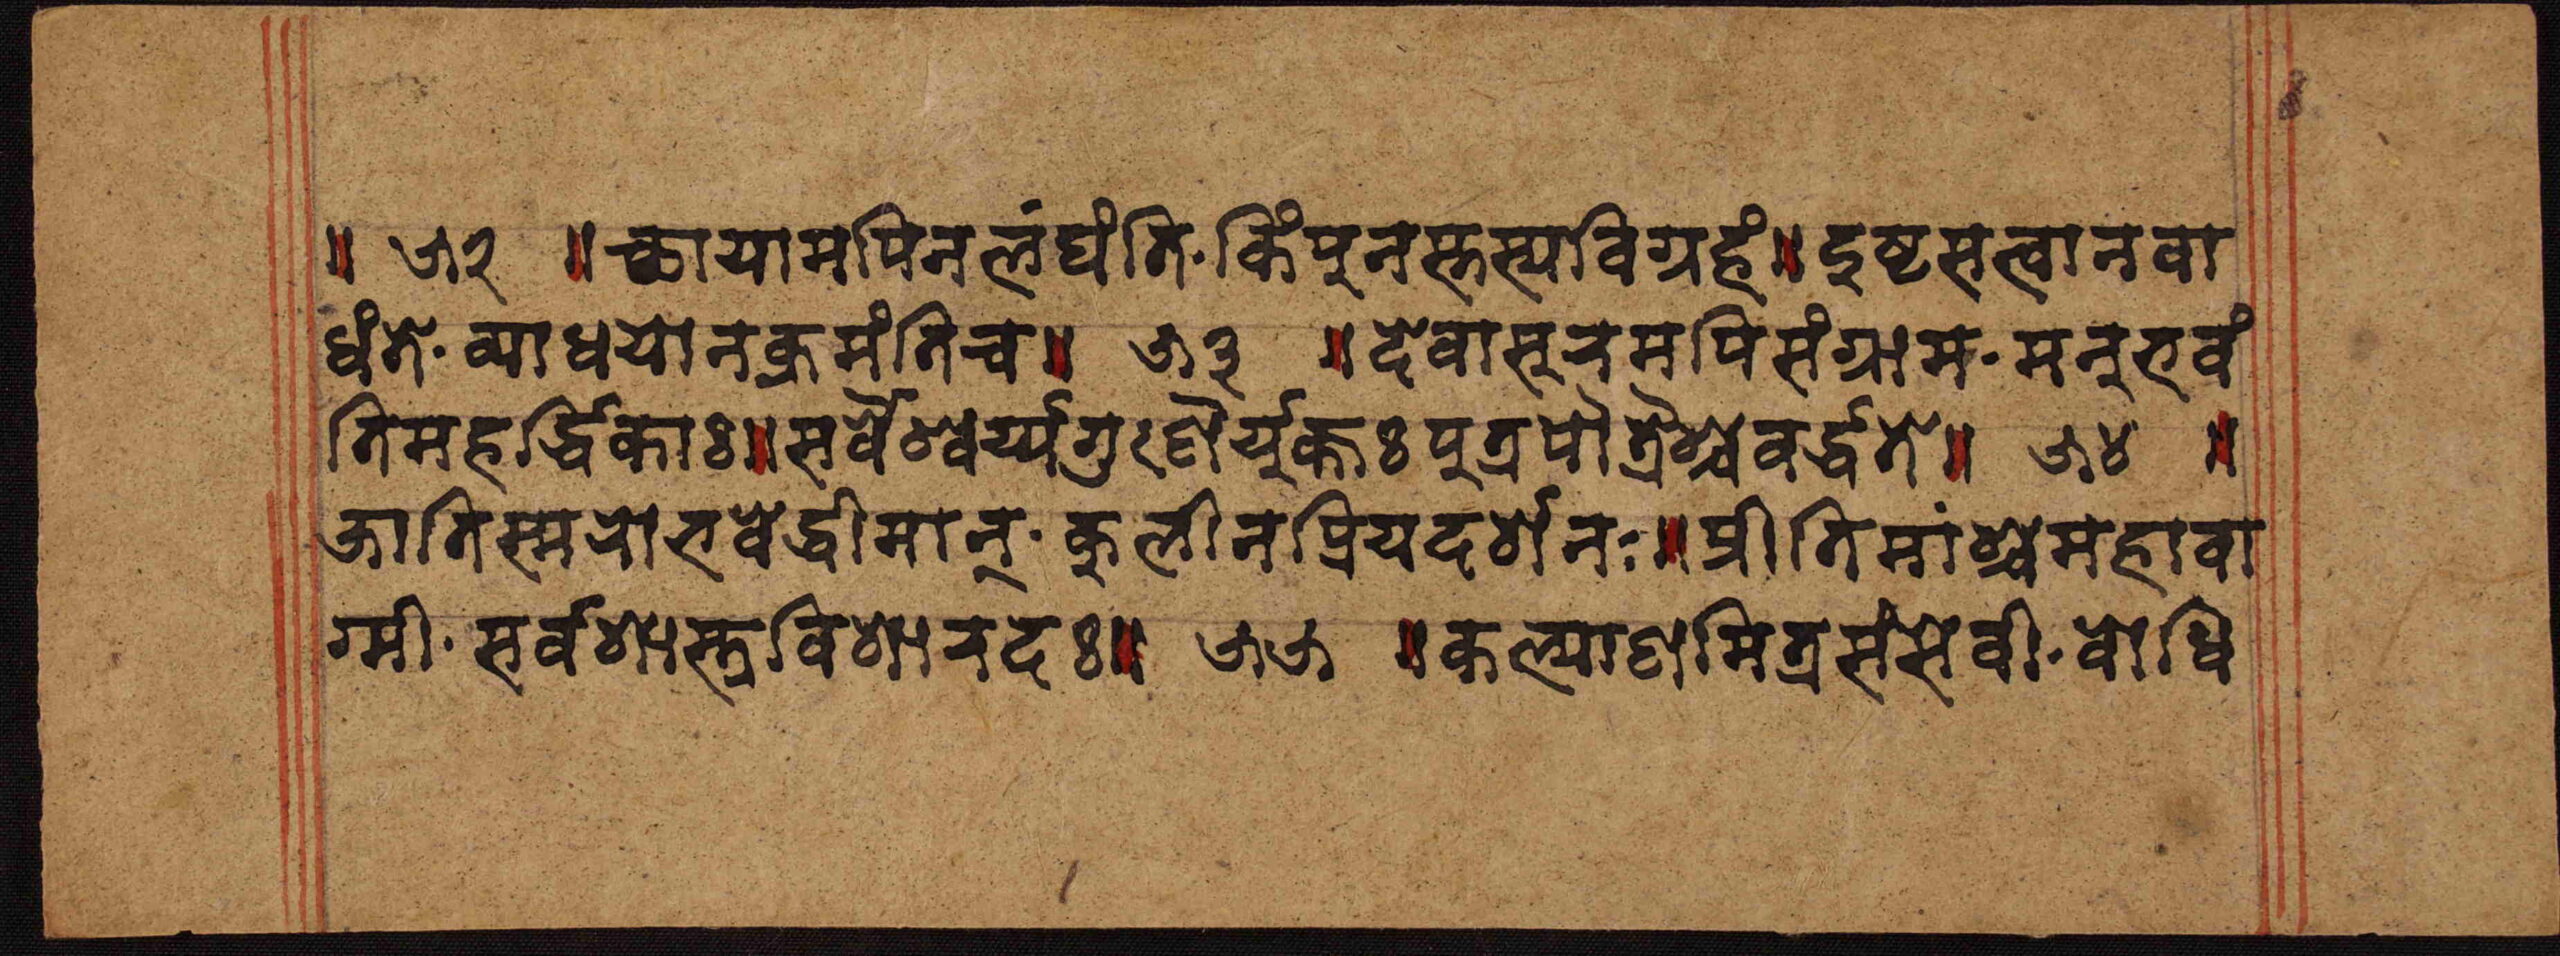 ॥ ५२ ॥ छायामपिनलंघंति· किंपुनस्तस्यविग्रहं॥ दुष्टसत्वानवा
धंते· व्याधयोनक्रमंतिच॥ ५३ ॥ देवासुरमपिसंग्राम· मनुभवं
तिमहर्द्धिकाः॥ सर्वैश्वर्य्यगुणैर्युक्तः पुत्रपौत्रैश्चवर्द्धते॥ ५४ ॥
जातिस्मरोभवेद्धीमान्· कुलीनप्रियदर्शनः॥ प्रीतिमांश्चमहावा
ग्मी· सर्वशास्त्रविशारदः॥ ५५ ॥ कल्याणमित्रसंसेवी· वोधि